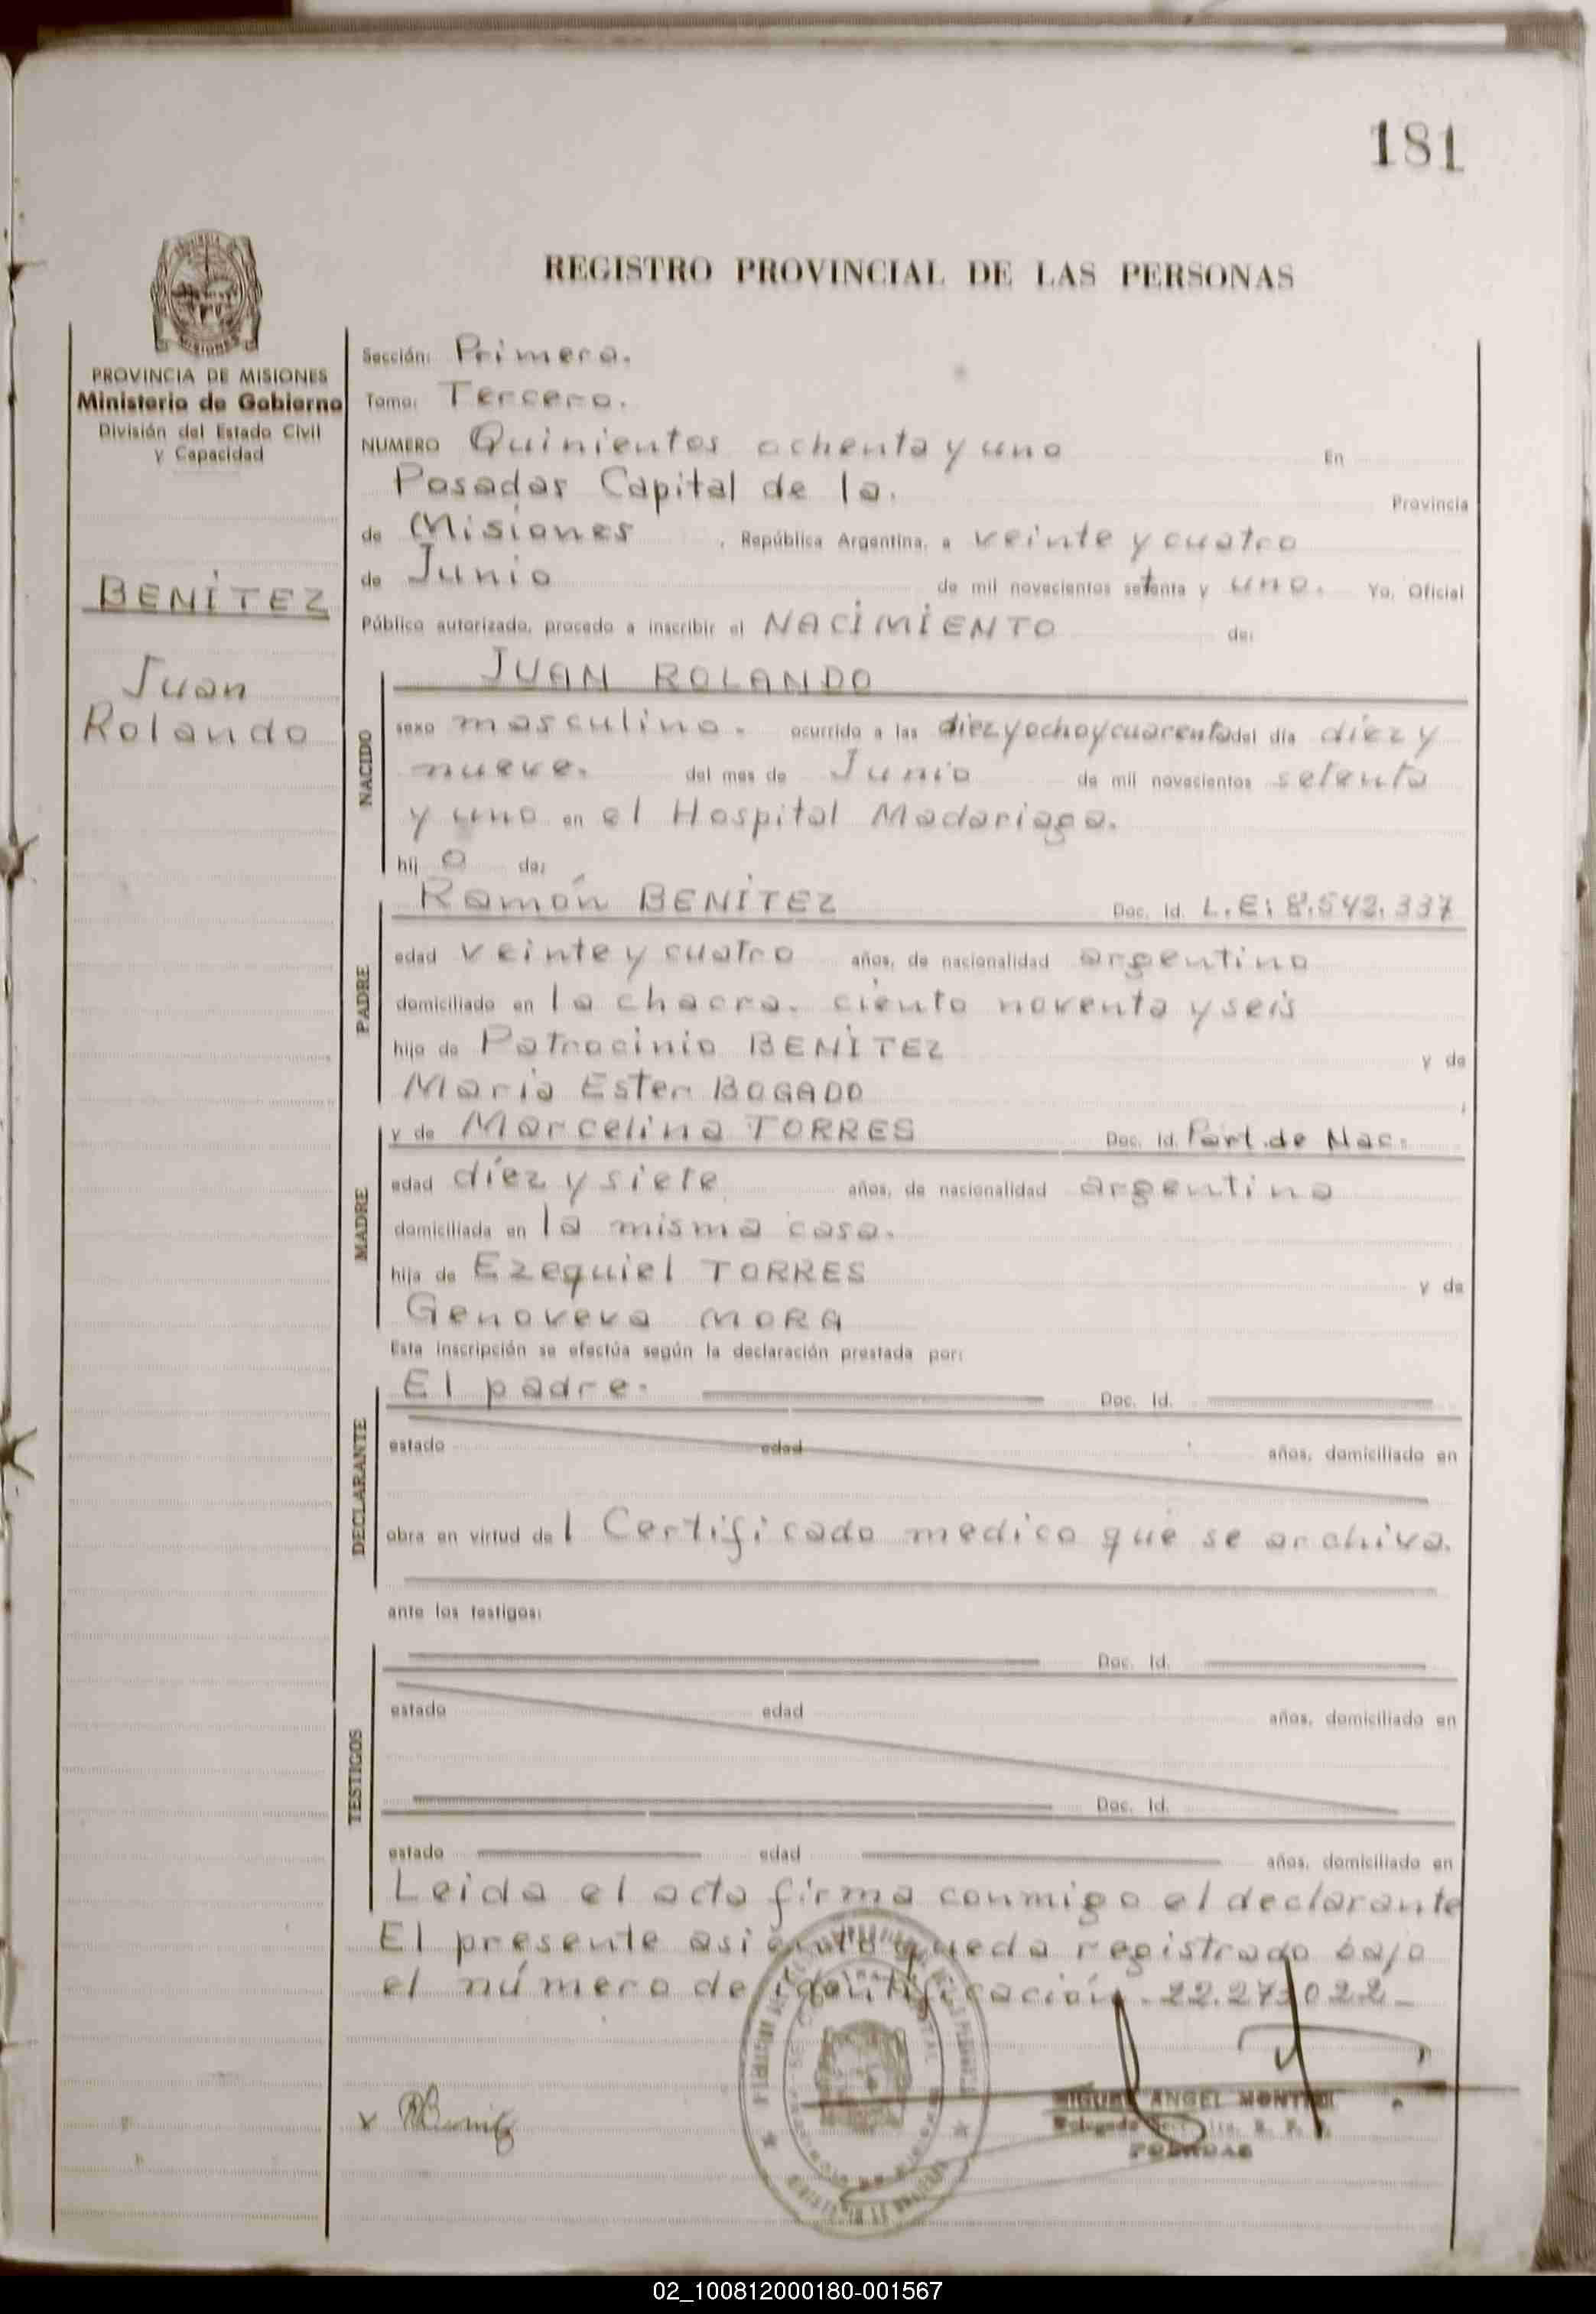 181
REGISTRO PROVINCIAL DE LAS PERSONAS
PROVINCIA DE MISIONES
Ministerio de Gobierno
División del Estado Civil
y Capacidad
BENÍTEZ
Juan
Rolando
Sección: Primera.
Tomo: Tercero.
NUMERO Quinientos ochenta y uno En
Posadas Capital de la. Provincia
de Misiones , República Argentina, a veinte y cuatro
de Junio de mil novecientos setenta y uno. Yo, Oficial
Público autorizado, procedo a inscribir el NACIMIENTO de:
NACIDO
JUAN ROLANDO
sexo masculino. ocurrido a las diez y ocho y cuarenta del día díez y
nueve. del mes de Junio de mil novecientos setenta
y uno en el Hospital Madariaga.
hij o de:
PADRE
Ramón BENÍTEZ Doc. Id. L.E: 8.542.337
edad veinte y cuatro años, de nacionalidad argentino
domiciliado en la chacra. ciento noventa y seis
hijo de Patrocinio BENÍTEZ y de
María Ester BOGADO
MADRE
y de Marcelina TORRES Doc. Id. Part. de Nac.
edad díez y siete años, de nacionalidad argentina
domiciliada en la misma casa.
hija de Ezequiel TORRES y de
Genoveva MORA
Esta inscripción se efectúa según la declaración prestada por:
DECLARANTE
El padre. Doc. Id.
estado edad años, domiciliado en
obra en virtud de l Certificado medico que se archiva.
ante los testigos:
TESTIGOS
Doc. Id.
estado edad años, domiciliado en
Doc. Id.
estado edad años, domiciliado en
Leida el acta firma conmigo el declarante
El presente asiento queda registrado bajo
el número de identificación. 22.27 022-
x RBenitez
MIGUEL ANGEL
POSADAS
02_100812000180-001567